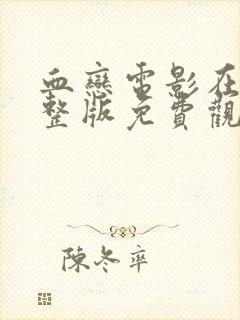 血戀電影在
整版免費觀
陳冬率